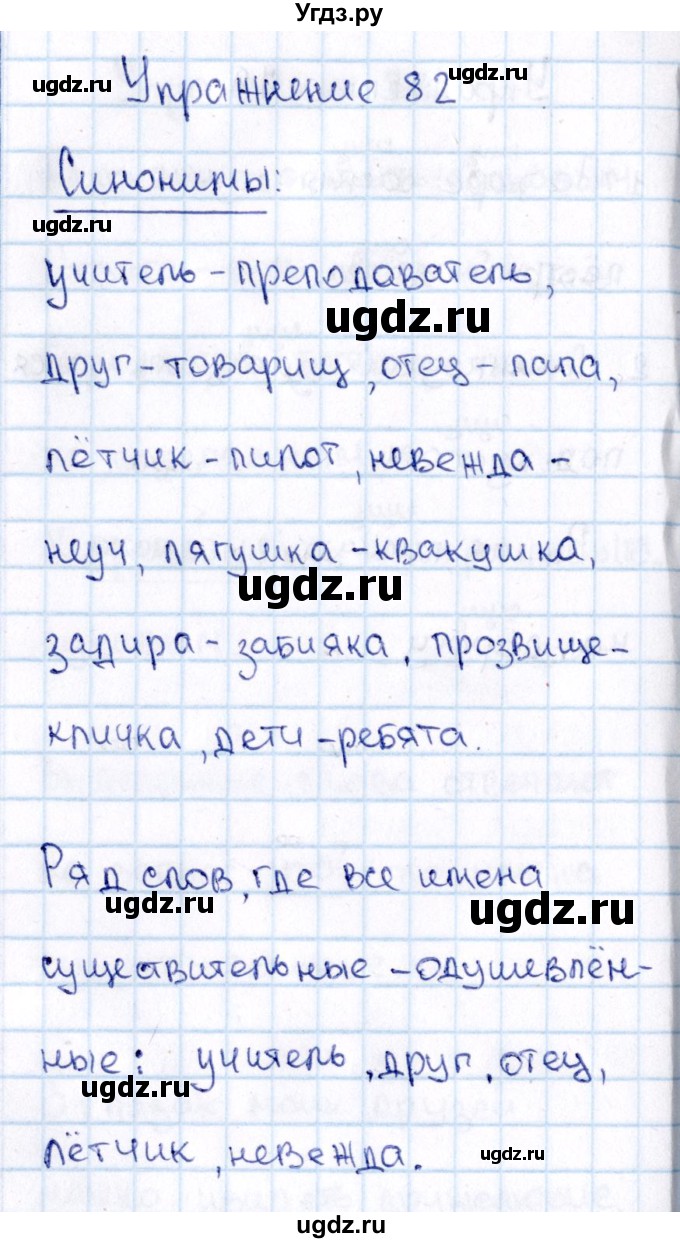 Угдз.ру
ugdz.ru
Упражнение 82
Синонимы:
ugdz.ru
учитель - преподаватель,
ugdz.ru
друг - товарищ, отец - папа,
лётчик - пилот, невежда -
неуч, лягушка - квакушка,
ugdz.ru
задира - забияка, прозвище -
кличка, дети - ребята.
Ряд слов, где все имена
ugdz.ru
ugdz.ru
существительные - одушевлён-
ные: учитель, друг, отец,
ugdz.ru
лётчик, невежда.
ugdz.ru
ugdz.ru